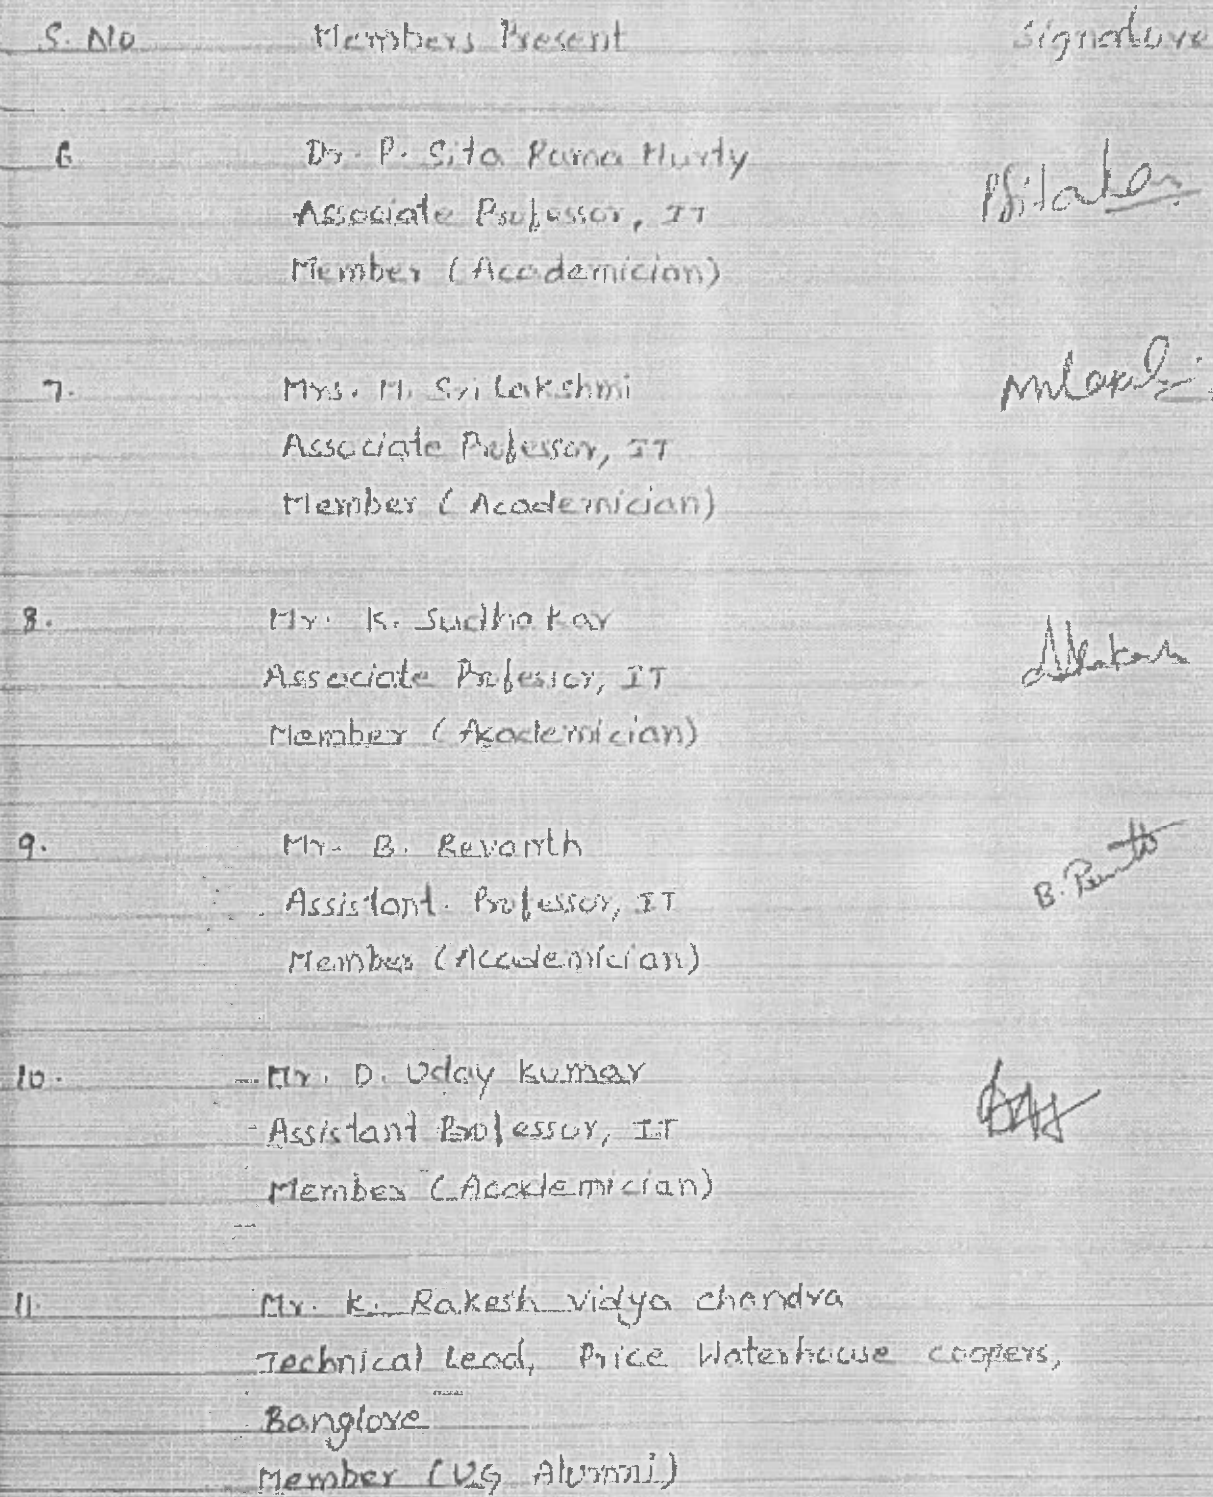 S. No Members Present Signature
6 Dr. P. Sita Rama Murty
Associate Professor, IT
Member (Academician)
7. Mrs. M. Sri Lakshmi
Associate Professor, IT
Member (Academician)
8. Mr. K. Sudhakar
Associate Professor, IT
Member (Academician)
9. Mr. B. Revanth B. Revanth
Assistant Professor, IT
Member (Academician)
10. Mr. D. Uday Kumar
Assistant Professor, IT
Member (Academician)
11. Mr. K. Rakesh Vidya Chandra
Technical Lead, Price Waterhouse Coopers,
Banglore
Member (UG Alumni)